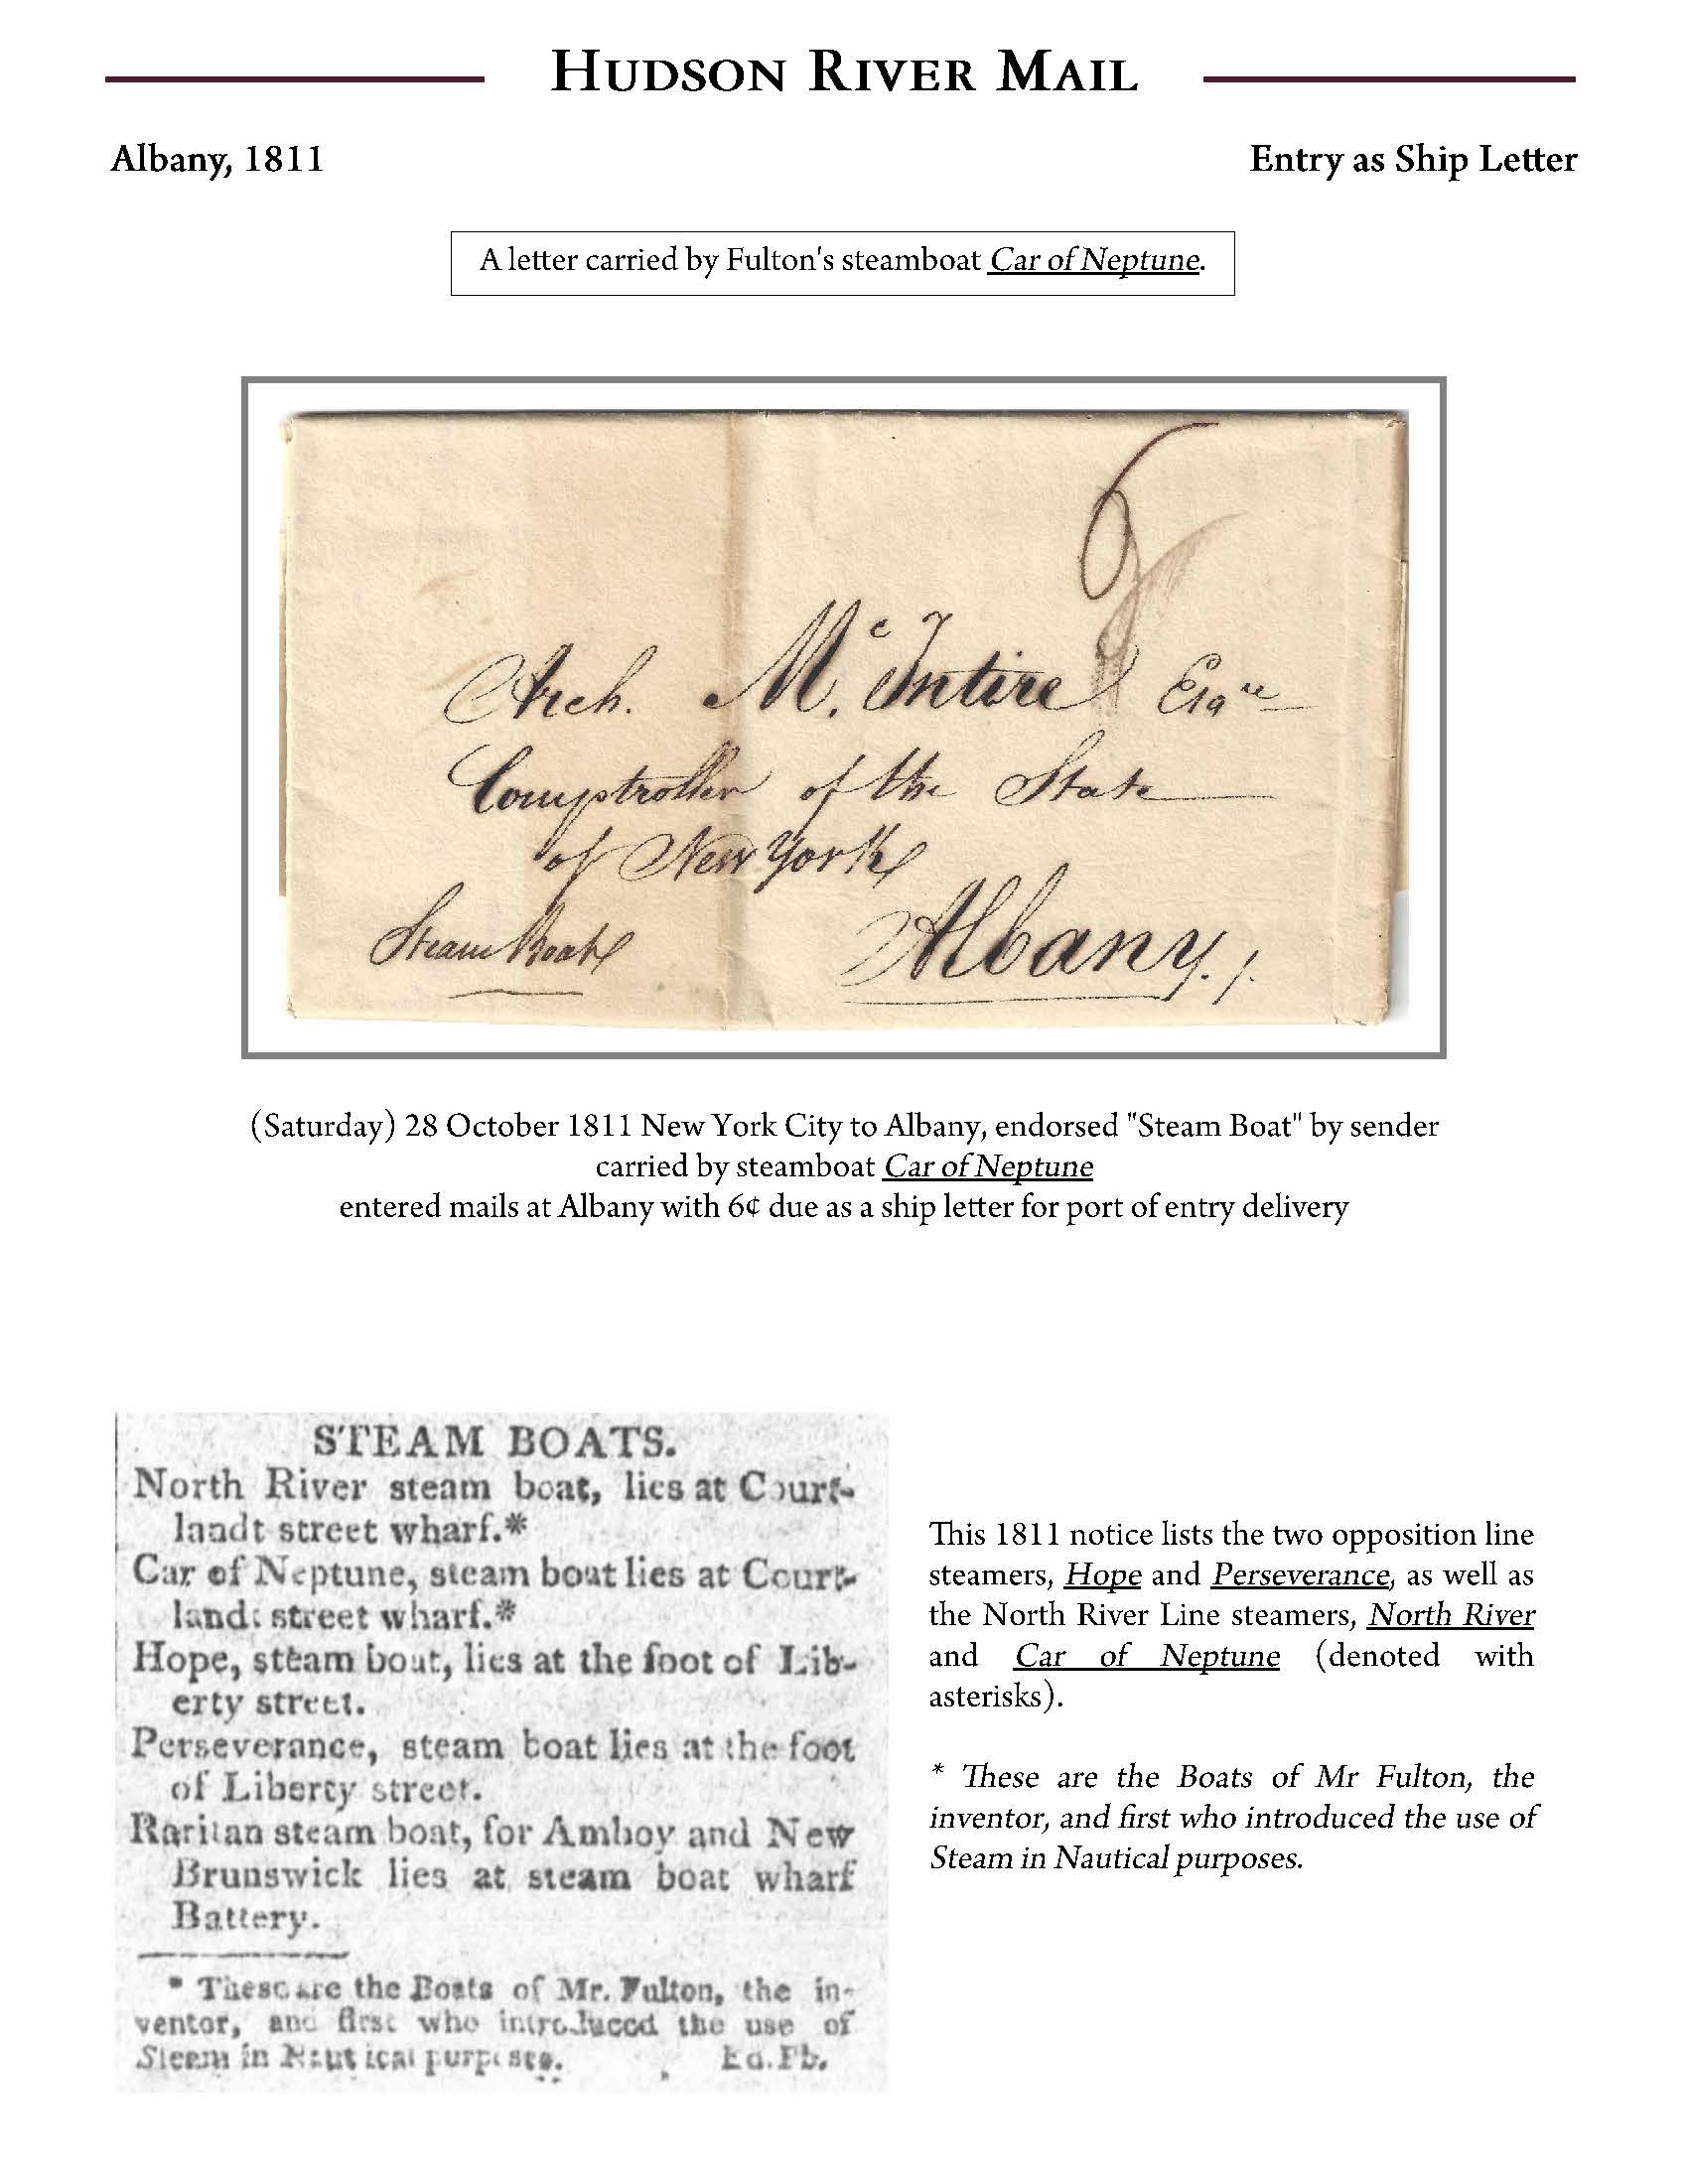 HUDSON RIVER MAIL
Albany, 1811
Entry as Ship Letter
A letter carried by Fulton's steamboat Car of Neptune.
6
Arch. Mc.Intire Esqre
Comptroller of the State
of New York
Steam Boat
Albany./.
(Saturday) 28 October 1811 New York City to Albany, endorsed "Steam Boat" by sender
carried by steamboat Car of Neptune
entered mails at Albany with 6¢ due as a ship letter for port of entry delivery
STEAM BOATS.
North River steam boat, lies at Court-
landt street wharf.*
Car of Neptune, steam boat lies at Court-
landt street wharf.*
Hope, steam boat, lies at the foot of Lib-
erty street.
Perseverance, steam boat lies at the foot
of Liberty street.
Raritan steam boat, for Amboy and New
Brunswick lies at steam boat wharf
Battery.
* These are the Boats of Mr. Fulton, the in-
ventor, and first who introduced the use of
Steam in Nautical purposes. Ed. Pb.
This 1811 notice lists the two opposition line
steamers, Hope and Perseverance, as well as
the North River Line steamers, North River
and Car of Neptune (denoted with
asterisks).
* These are the Boats of Mr Fulton, the
inventor, and first who introduced the use of
Steam in Nautical purposes.